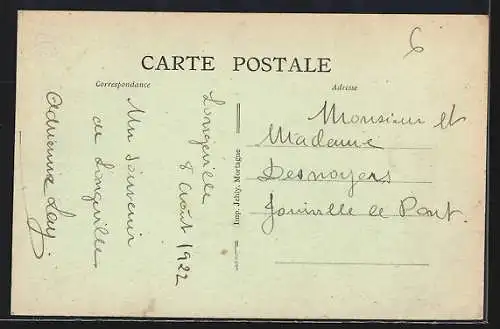 6
CARTE POSTALE
Correspondance
Adresse
Longeville
8 Août 1922
Un Souvenir
de Longeville
Adrienne Lay
Imp. Jehly, Mortagne
Monsieur et
Madame
Desnoyers
Joinville le Pont.